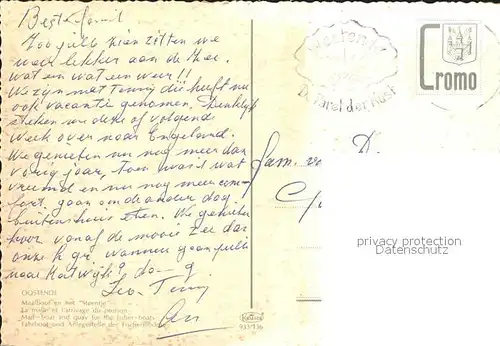 Beste famil
Zoo jullie zien zitten we
weer lekker aan de Zee.
wat een wat een weer!!
We zijn met Tonny die heeft nu
ook vacantie genomen. Denkelijk
steken we deze of volgend
week over naar Engeland.
We genieten nu nog meer dan
vorig jaar, toen was 't wat
vreemd en nu nog meer com-
fort. gaan om de ander dag
buitenshuis eten. We genieten
hoor vanaf de mooie Zee dar
onze h. gr. wanneer gaan jullie
naar Katwijk? da- g.
Leo- Tonny
An
OOSTENDE
Mailboot en het "Vistrapje"
La malle et l'arrivage du poisson
Mail-boat and quay for the fisher-boats
Fährboot und Anlegestelle der Fischerboote
933/136
Westende
De Parel der Kust
Cromo
D.
Fam. v
privacy protection
Datenschutz